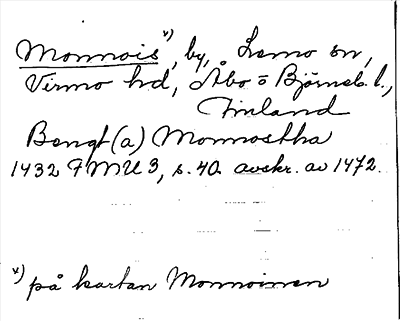 Monnois v), by, Lemo sn,
Virmo hd, Åbo o Björneb. l.,
Finland
Bengt (a) Monnostha
1432 FMU 3, s. 40. avskr. av 1472.
v) på kartan Monnoinen